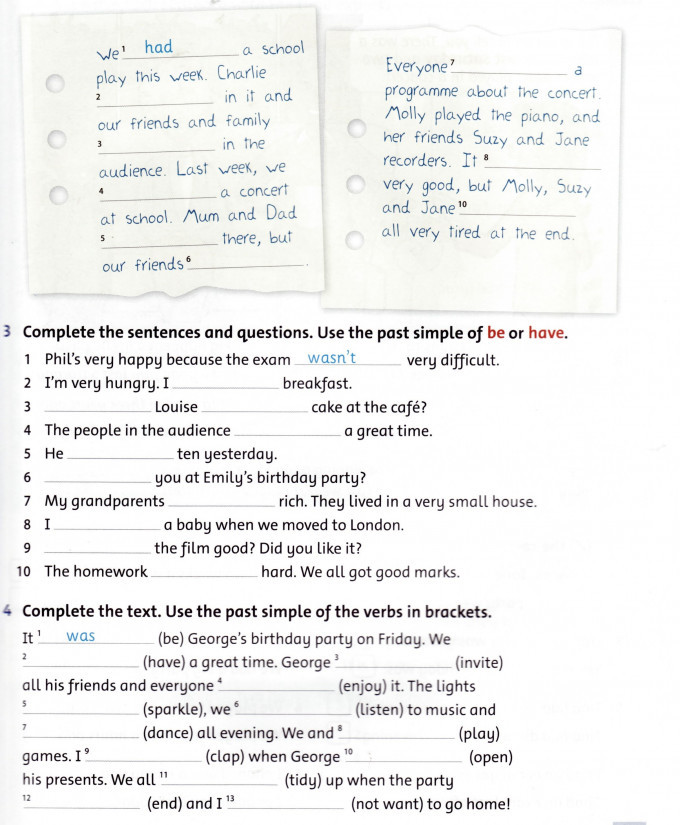 We ¹ had a school
play this week. Charlie
2 in it and
our friends and family
3 in the
audience. Last week, we
4 a concert
at school. Mum and Dad
5 there, but
our friends 6 .
Everyone 7 a
programme about the concert.
Molly played the piano, and
her friends Suzy and Jane
recorders. It 8
very good, but Molly, Suzy
and Jane 10
all very tired at the end.
3 Complete the sentences and questions. Use the past simple of be or have.
1 Phil's very happy because the exam wasn't very difficult.
2 I'm very hungry. I ____ breakfast.
3 ____ Louise ____ cake at the café?
4 The people in the audience ____ a great time.
5 He ____ ten yesterday.
6 ____ you at Emily's birthday party?
7 My grandparents ____ rich. They lived in a very small house.
8 I ____ a baby when we moved to London.
9 ____ the film good? Did you like it?
10 The homework ____ hard. We all got good marks.
4 Complete the text. Use the past simple of the verbs in brackets.
It ¹ was (be) George's birthday party on Friday. We
2 ____ (have) a great time. George 3 ____ (invite)
all his friends and everyone 4 ____ (enjoy) it. The lights
5 ____ (sparkle), we 6 ____ (listen) to music and
7 ____ (dance) all evening. We and 8 ____ (play)
games. I 9 ____ (clap) when George 10 ____ (open)
his presents. We all 11 ____ (tidy) up when the party
12 ____ (end) and I 13 ____ (not want) to go home!